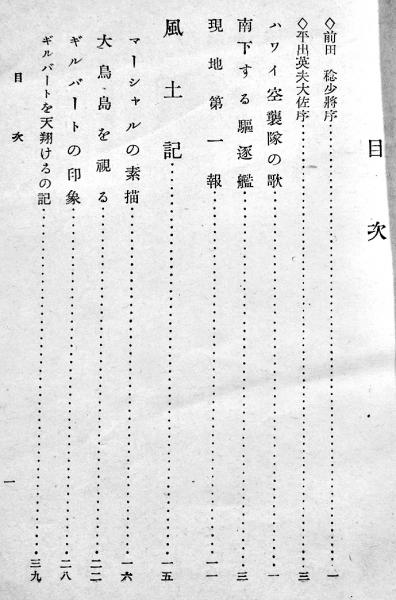 目次
◇前田稔少將序……一
◇平出英夫大佐序……三
ハワイ空襲隊の歌……一
南下する驅逐艦……三
現地第一報……一一
風土記……一五
マーシャルの素描……一六
大鳥島を視る……二二
ギルバートの印象……二八
ギルバートを天翔けるの記……三九
目次
一